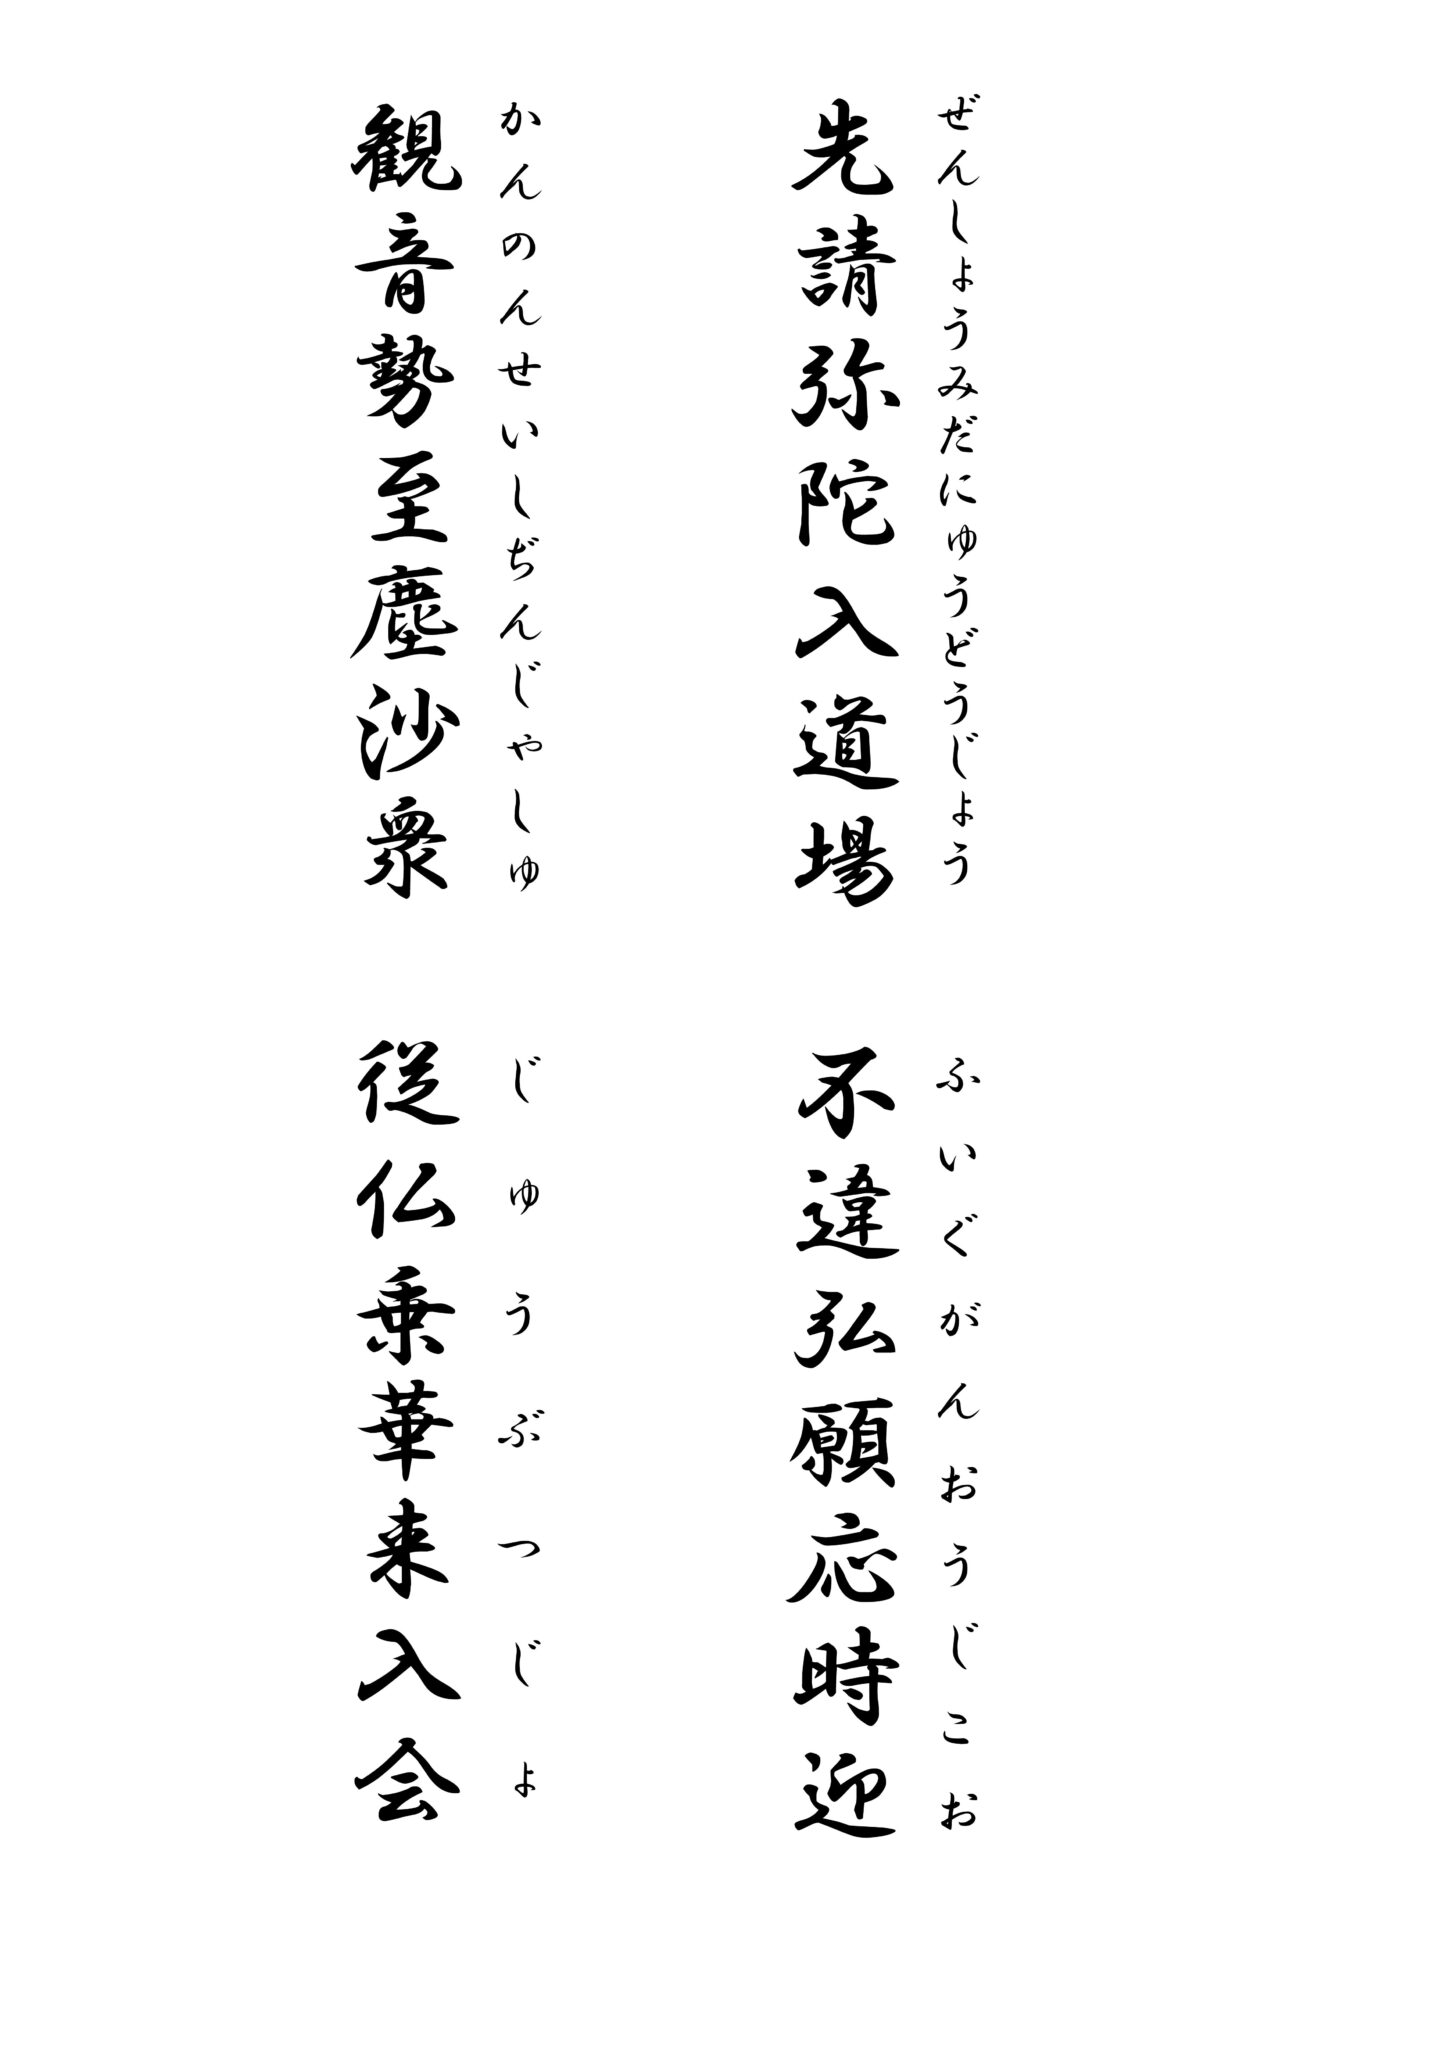 ぜんしょうみだにゅうどうじょう
先請弥陀入道場
ふいぐがんおうじこお
不違弘願応時迎
かんのんせいしぢんじゃしゅ
観音勢至塵沙衆
じゅうぶつじょ
従仏乗華来入会